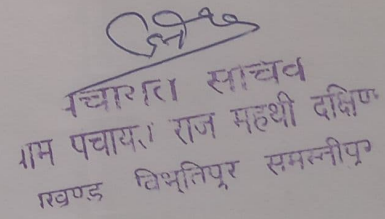 पंचायत सचिव
ग्राम पंचायत राज महथी दक्षिण
प्रखण्ड विभूतिपुर समस्तीपुर